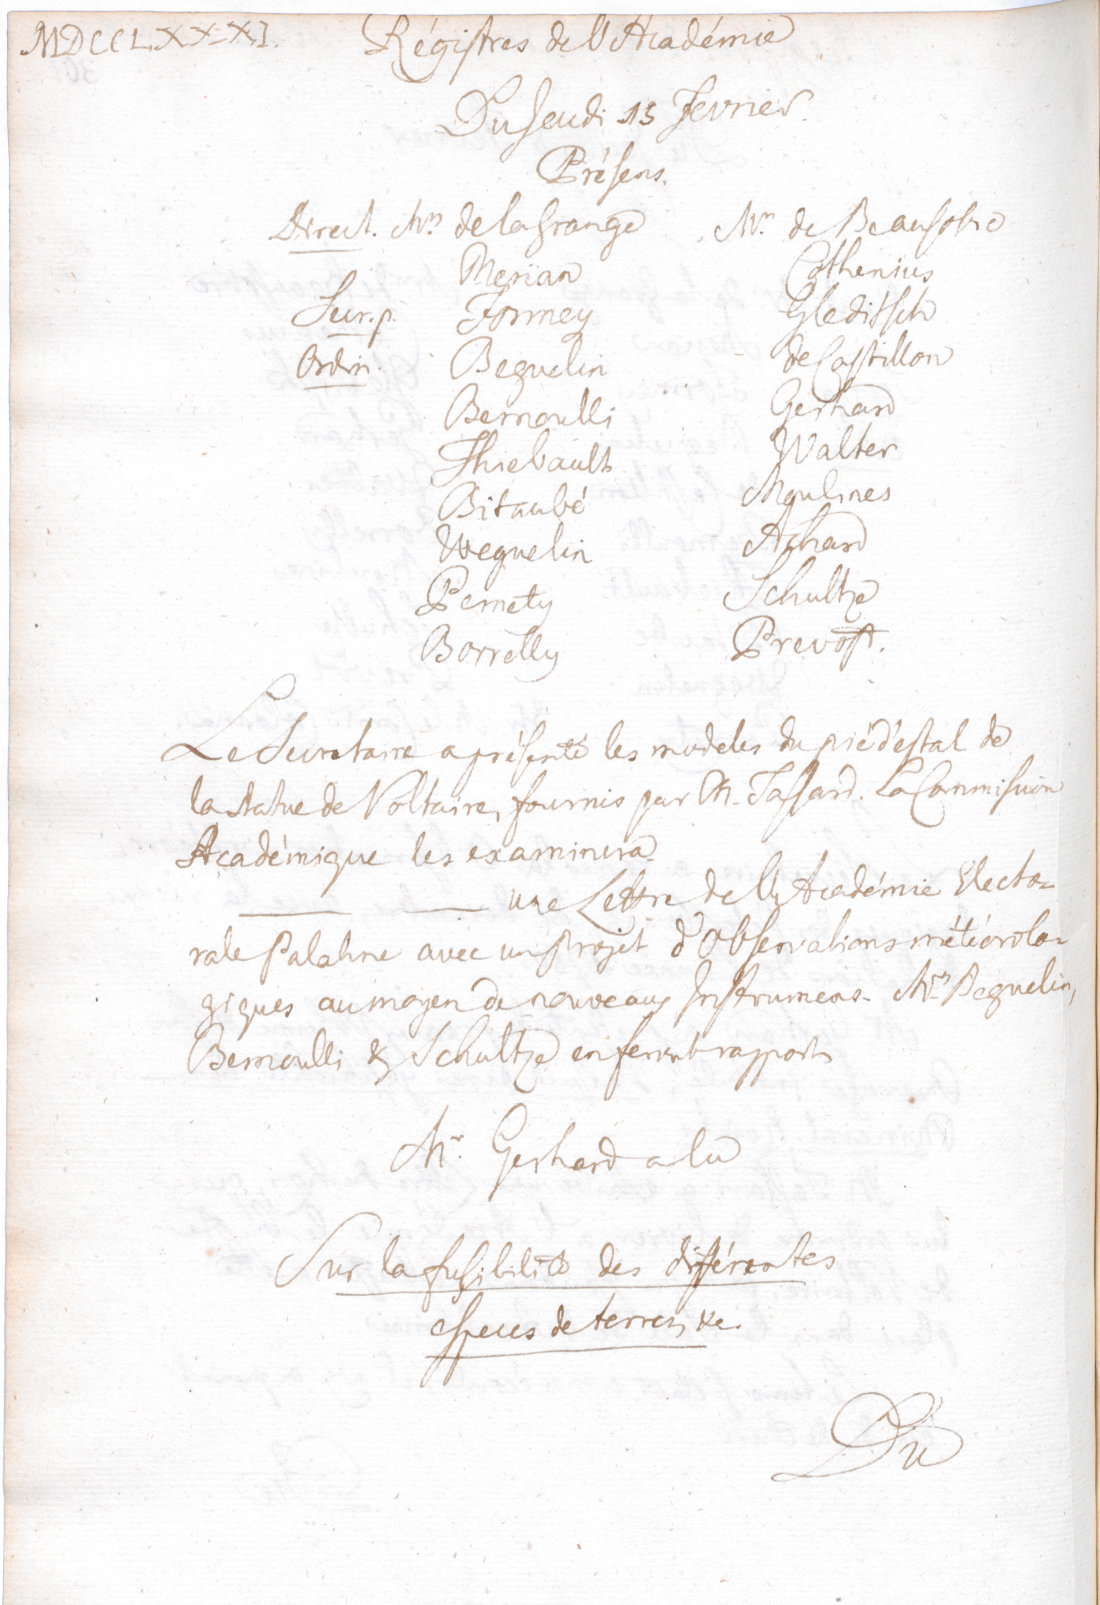 MDCCLXXXI. Régistres de l'Académie
Du Jeudi 15 Fevrier.
Présens.
Direct. Mrs de la Grange Mrs de Beausobre
Merian Cothenius
Secr. p. Formey Gleditsch
Ordin. Beguelin de Castillon
Bernoulli Gerhard
Thiebault Walter
Bitaubé Moulines
Weguelin Achard
Pernety Schultze
Borrelly Prevost.
Le Secretaire a présenté les modeles du pié d'estal de
la Statue de Voltaire, fournis par M. Tassard. La Commission
Académique les examinera.
une Lettre de l'Académie Electo-
rale Palatine avec un projet d'Observations météorolo-
giques au moyen de nouveaux Instrumens. Mrs Beguelin,
Bernoulli & Schultze en feront rapport
Mr. Gerhard a lu
Sur la fusibilité des différentes
especes de terres, &c.
Du